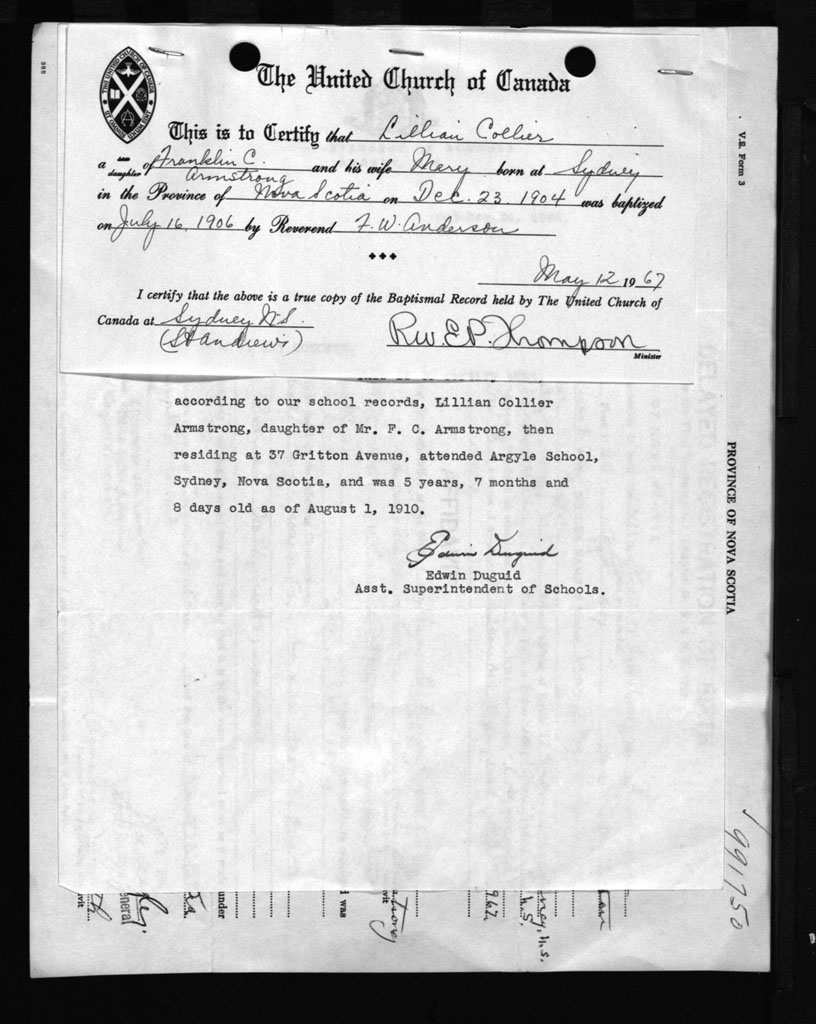 The United Church of Canada
This is to Certify that Lillian Collier
a son daughter of Franklin C. Armstrong and his wife Mery born at Sydney
in the Province of Nova Scotia on Dec. 23. 1904 was baptized
on July 16, 1906 by Reverend F. W. Anderson
May 12 1967
I certify that the above is a true copy of the Baptismal Record held by The United Church of
Canada at Sydney N.S.
(St Andrew's)
Rev. E.P. Thompson
Minister
according to our school records, Lillian Collier
Armstrong, daughter of Mr. F. C. Armstrong, then
residing at 37 Gritton Avenue, attended Argyle School,
Sydney, Nova Scotia, and was 5 years, 7 months and
8 days old as of August 1, 1910.
Edwin Duguid
Edwin Duguid
Asst. Superintendent of Schools.
V.S. Form 3
PROVINCE OF NOVA SCOTIA
991750
under
I was